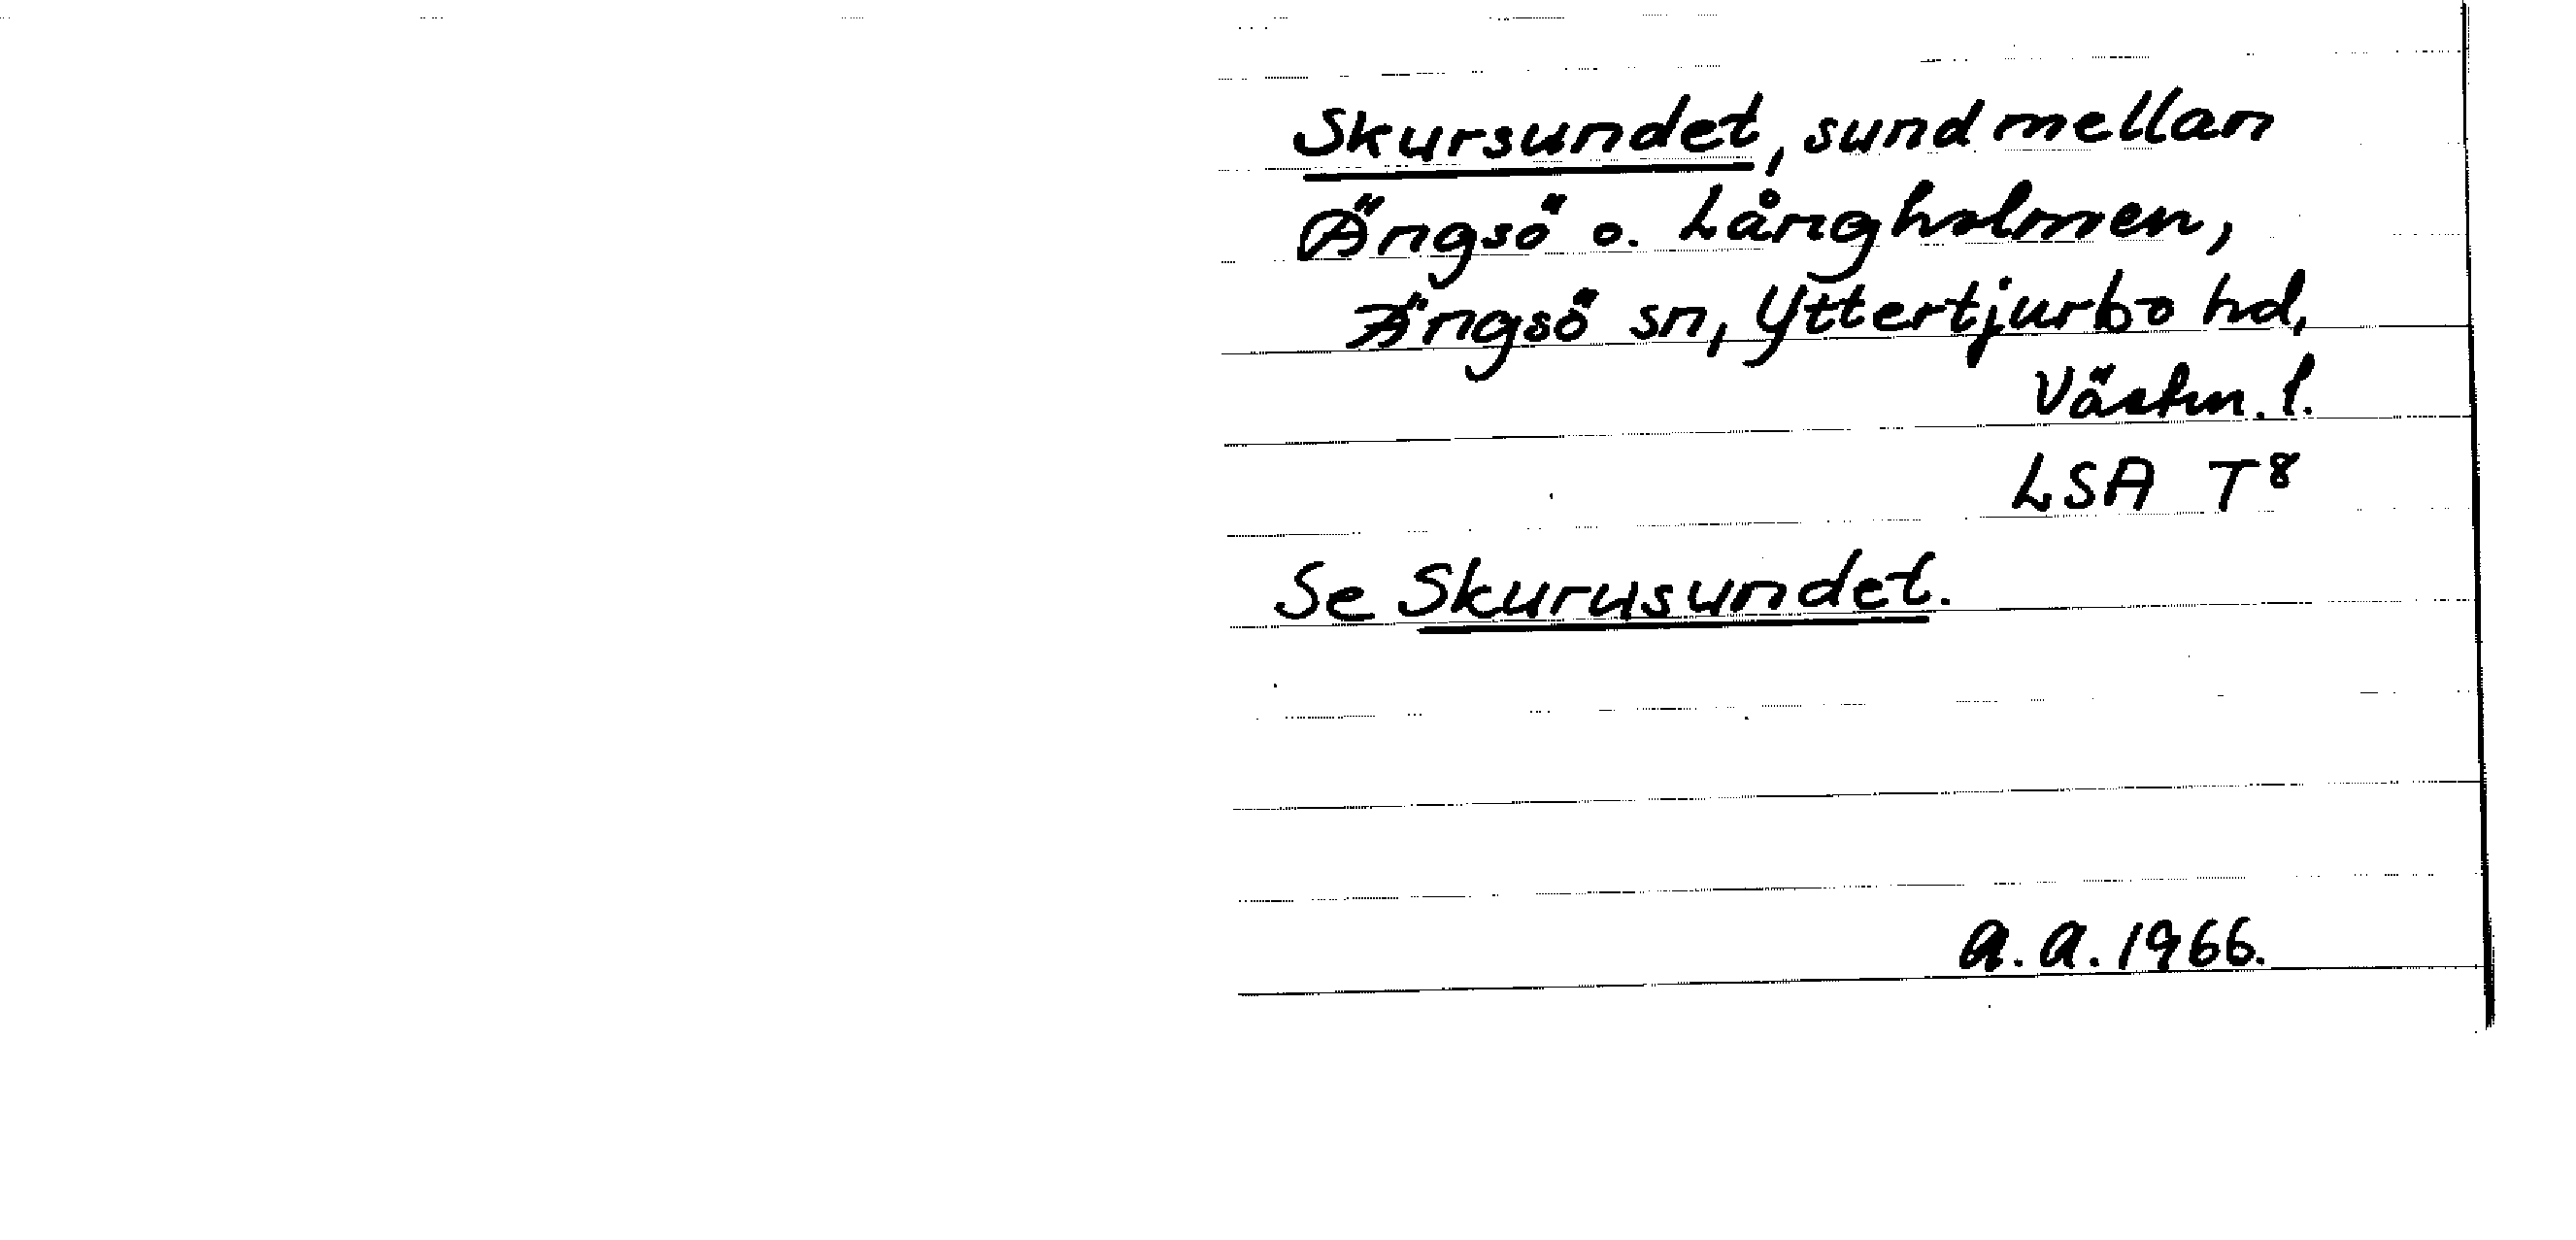 Skursundet, sund mellan
Ängsö o. Långholmen,
Ängsö sn, Yttertjurbo hd,
Västm. l.
LSA T8
Se Skurusundet.
a.a. 1966.